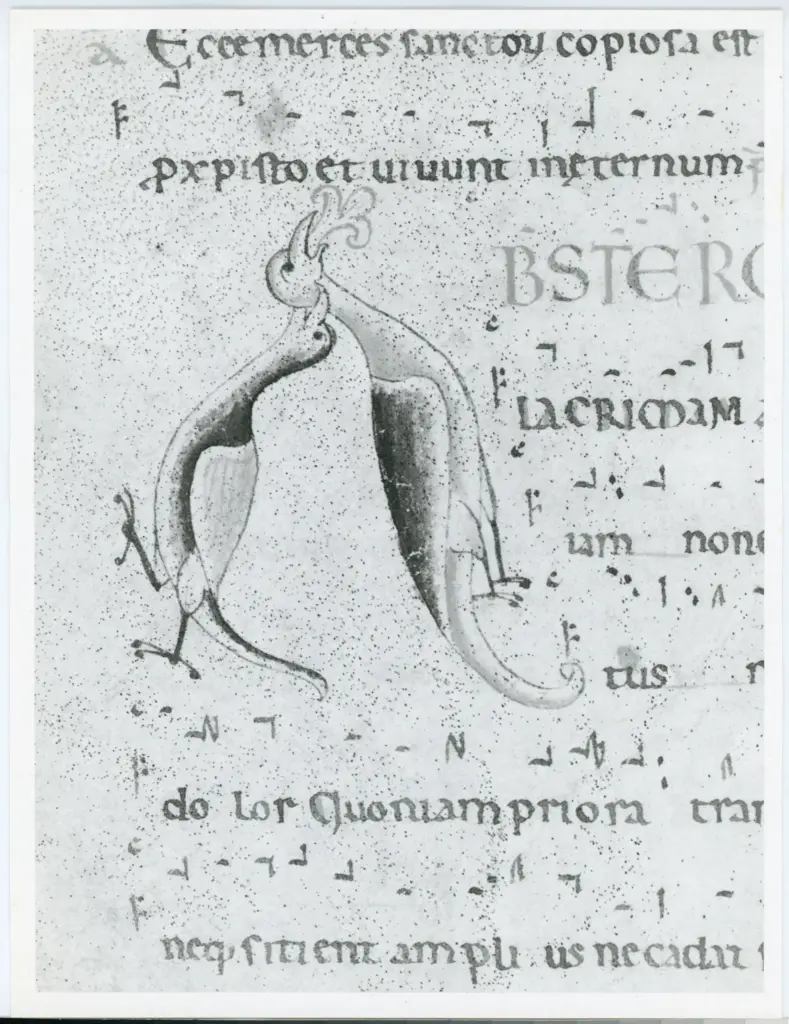 Ecce merces sanctoꝝ copiosa est
p xpisto et uiuunt inęternum
BSTERG
LACRIMAM
iam non
tus
do lor Quoniam priora tran
neq; sitient ampli us ne cadat